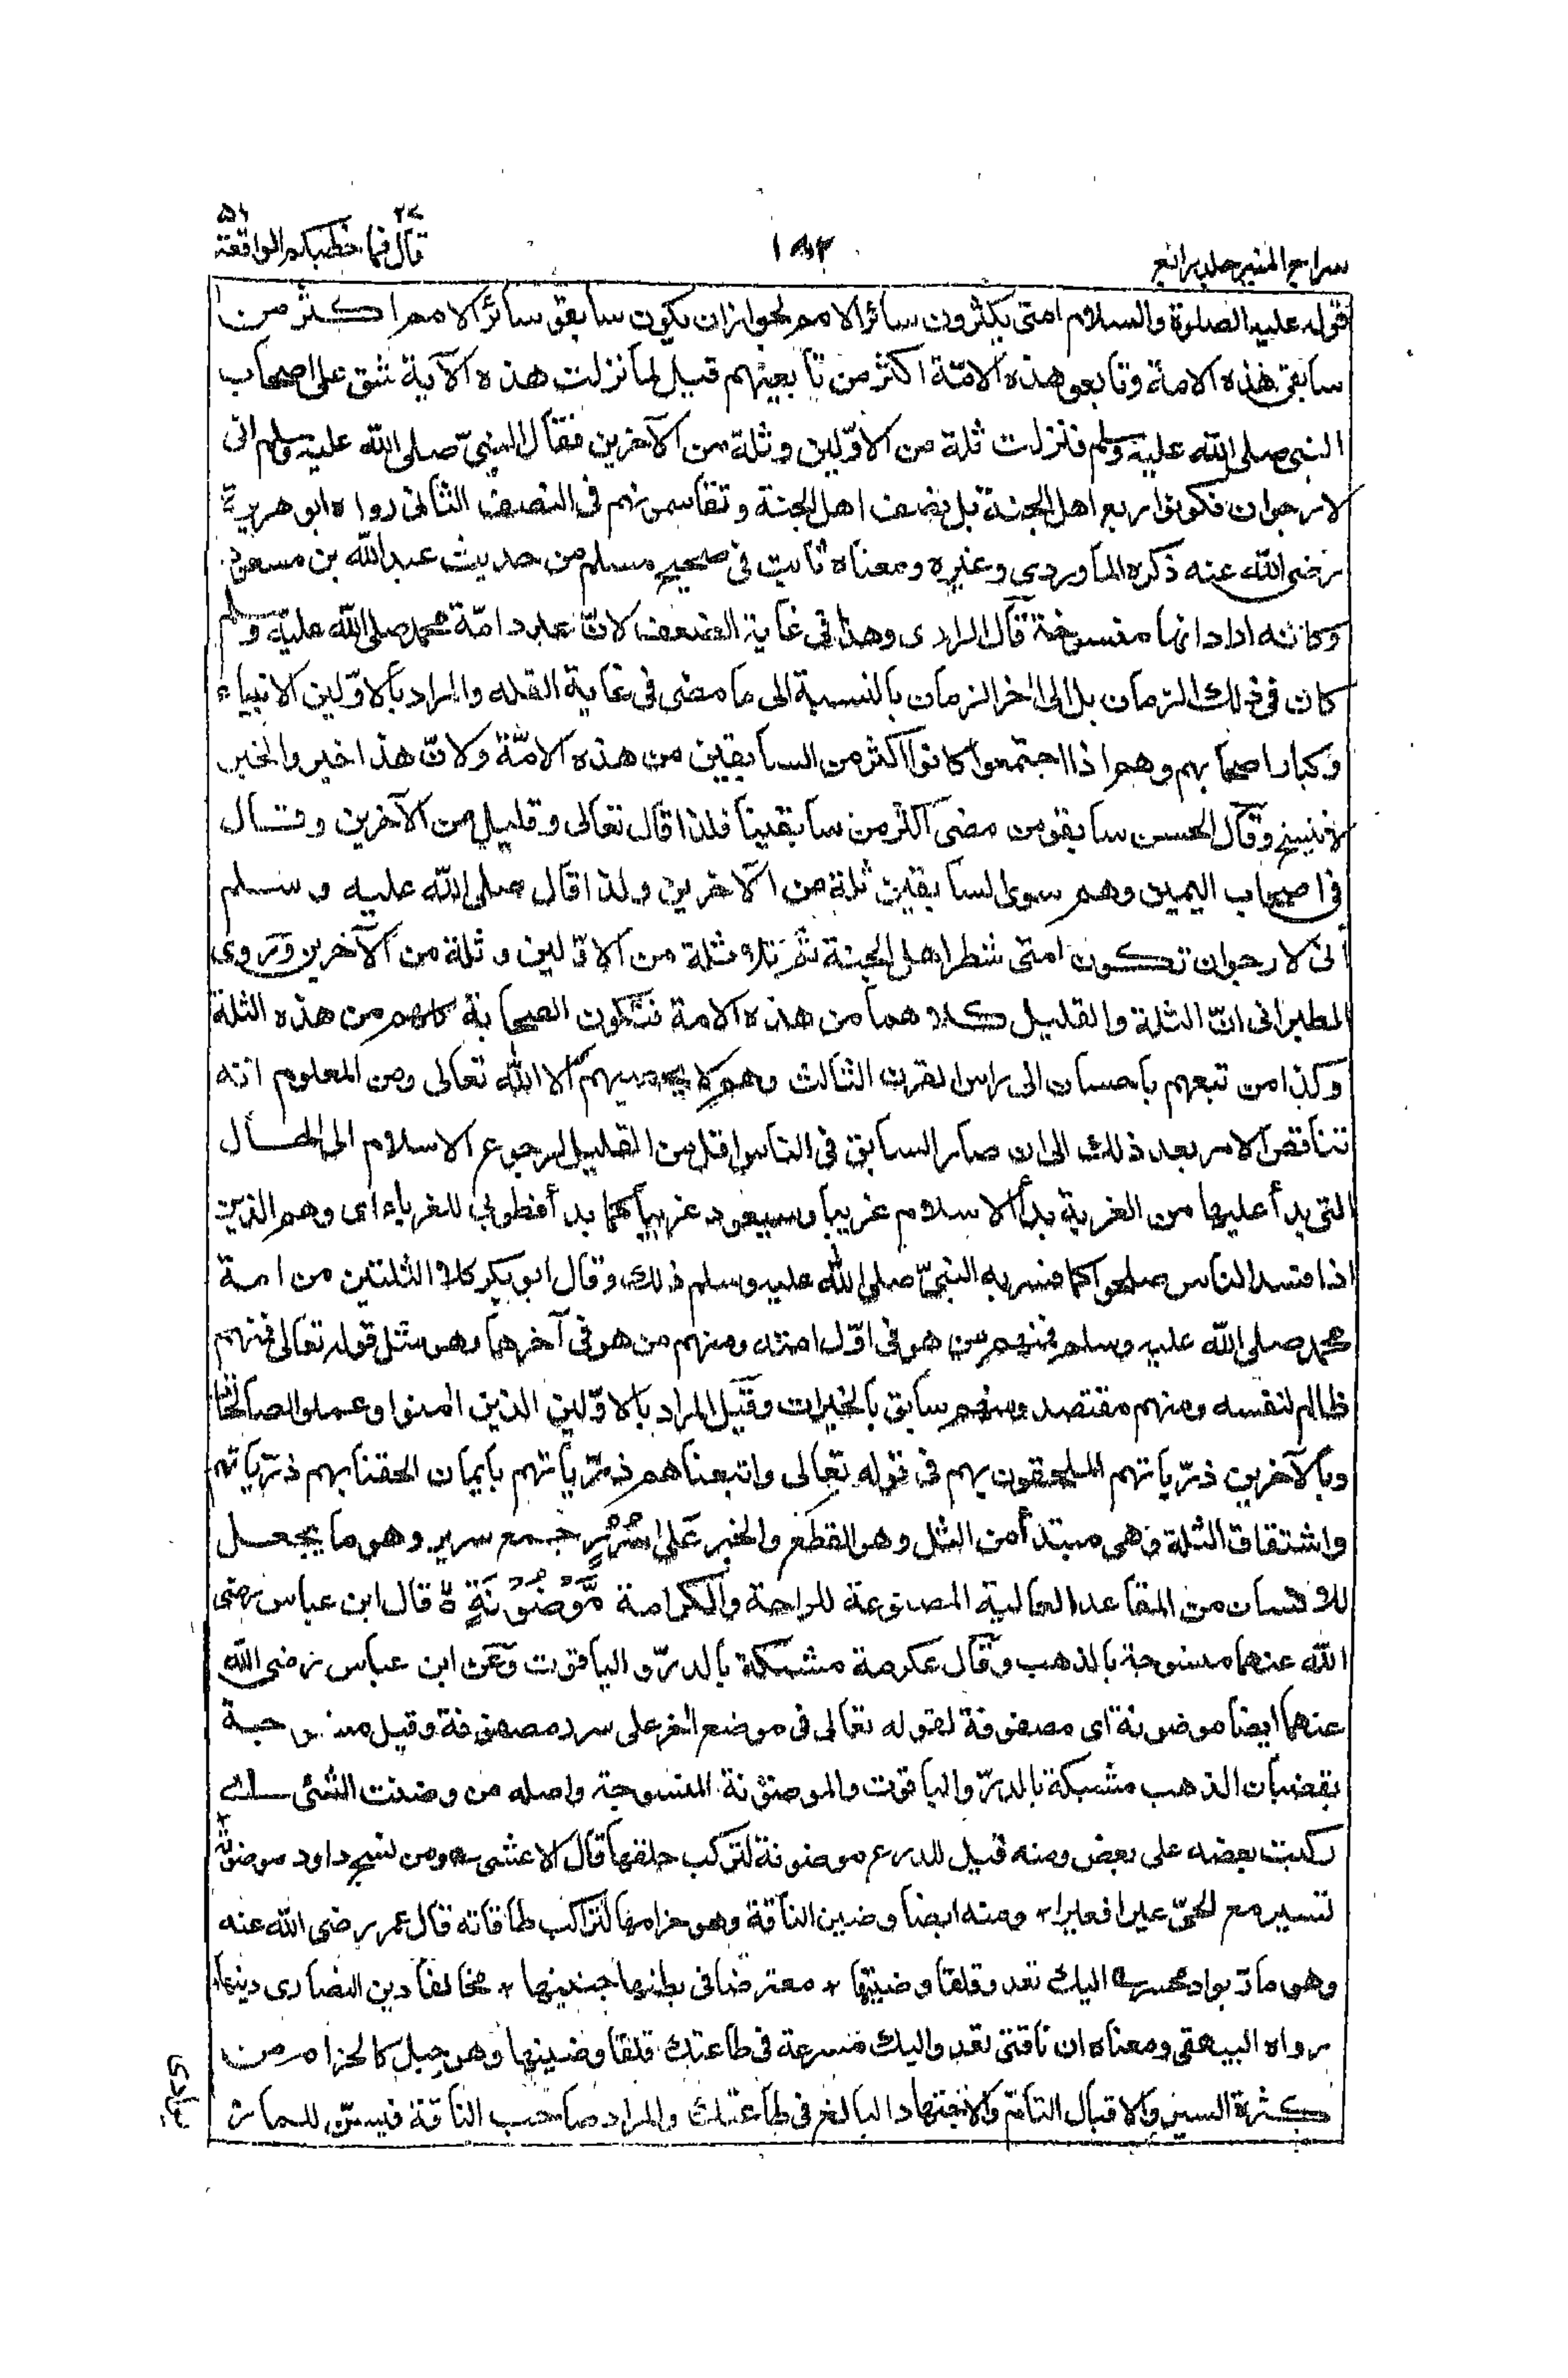 سراج المنير جلد رابع
١٨٢
٢٧ ٥٦
قال فما خطبكم الواقعة
قوله عليه الصلوة والسلام امتى يكثرون سائر الامم لجوازان يكون سابقو سائر الامم اكثر من
سابقى هذه الامة وتابعو هذه الامّة اكثر من تابعيهم قيل لما نزلت هذه الآية شق على اصحاب
النبى صلى الله عليه وسلم فنزلت ثلة من الاوّلين وثلة من الآخرين فقال النبىّ صلى الله عليه وسلم انى
لارجوان تكونوا ربع اهل الجنة بل نصف اهل الجنة وتقاسمونهم فى النصف الثانى رواه ابو هريرة
رضى الله عنه ذكره الماوردى وغيره ومعناه ثابت فى صحيح مسلم من حديث عبدالله بن مسعود
وكانه اراد انها منسوخة قال الرازى وهذا فى غاية الضعف لانّ عدد امّة محمد صلى الله عليه وسلم
كان فى ذلك الزمان بل الى اٰخر الزمان بالنسبة الى ما مضى فى غاية القله والمراد بالاوّلين الانبياء
وكبار اصحابهم وهم اذا اجتمعوا كانوا اكثر من السابقين من هذه الامّة ولانّ هذا خبر والخبر
لا ينسخ وقال الحسن سابقو من مضى اكثر من سابقينا فلذا قال تعالى وقليل من الآخرين وقال
فى اصحاب اليمين وهم سوى السابقين ثلة من الآخرين ولذا قال صلى الله عليه وسلم
انى لارجوان تكون امتى شطر اهل الجنة ثم تلا ثلة من الاوّلين وثلة من الآخرين وروى
الطبرانى انّ الثلة والقليل كلاهما من هذه الامة فتكون الصحابة كلهم من هذه الثلة
وكذا من تبعهم باحسان الى راس القرن الثالث وهم لا يحصيهم الا الله تعالى ومن المعلوم انه
تناقص الامر بعد ذلك الى ان صار السابق فى الناس اقل من القليل لرجوع الاسلام الى الحال
التى بدأ عليها من الغربة بدأ الاسلام غريبا وسيعود غريبا كما بدأ فطوبى للغرباء اى وهم الذين
اذا فسد الناس صلحوا كما فسر به النبىّ صلى الله عليه وسلم ذلك وقال ابو بكر كلا الثلتين من امة
محمد صلى الله عليه وسلم فمنهم من هو فى اوّل امته ومنهم من هو فى آخرها وهو مثل قوله تعالى فمنهم
ظالم لنفسه ومنهم مقتصد ومنهم سابق بالخيرات وقيل المراد بالاوّلين الذين اٰمنوا وعملوا الصالحات
وبالآخرين ذرّياتهم الملحقون بهم فى قوله تعالى واتبعناهم ذرّياتهم بايمان الحقنا بهم ذرّياتهم
واشتقاق الثلة وهى مبتدأ من الثل وهو القطع والخبر عَلىٰ سُرُرٍ جمع سرير وهو ما يجعل
للانسان من المقاعد العالية المصنوعة للراحة والكرامة مَّوْضُوْنَةٍ ۝ قال ابن عباس رضى
الله عنهما منسوجة بالذهب وقال عكرمة مشبكة بالدرّ والياقوت وعن ابن عباس رضى الله
عنهما ايضا موضونة اى مصفوفة لقوله تعالى فى موضع اٰخر على سرر مصفوفة وقيل منسوجة
بقضبان الذهب مشبكة بالدرّ والياقوت والموضونة المنسوجة واصله من وضنت الشئ اى
ركبت بعضه على بعض ومنه قيل للدرع موضونة لتركب حلقها قال الاعشى ومن نسج داود موضونة
تسير مع الحىّ عيرا فعيرا ومنه ايضا وضين الناقة وهو حزامها لتراكب طاقاته قال عمر رضى الله عنه
وهو مارّ بواد محسر اليك تعدو قلقا وضينها * معترضا فى بطنها جنينها * مخالفا دين النصارى دينها
رواه البيهقى ومعناه ان ناقتى تعدو اليك مسرعة فى طاعتك قلقا وضينها وهو حبل كالحزام من
كثرة السير والاقبال التام والاجتهاد البالغ فى طاعتك والمراد صاحب الناقة فيسنّ للمار